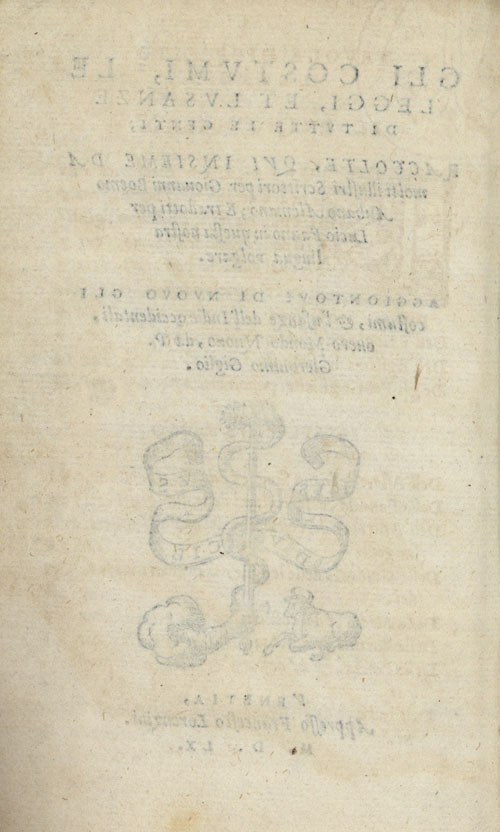 GLI COSTVMI, LE
LEGGI, ET LVSANZE
DI TVTTE LE GENTI,
RACCOLTE QVI INSIEME DA
molti illustri Scrittori per Giovanni Boemo
Aubano Alemano; E tradotti per
Lucio Fauno in questa nostra
lingua volgare.
AGGIONTOVI DI NVOVO GLI
costumi, & l'usanze dell'Indie occidentali,
ouero Mondo Nuouo, da P.
Gieronimo Giglio.
VENETIA,
Appresso Francesco Lorenzini.
M. D. LX.